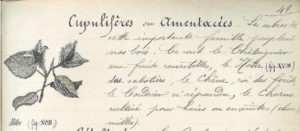 48.
Cupulifères ou Amentacées. Les arbres de
cette importante famille peuplent
nos bois. Ce sont le Châtaignier
aux fruits comestibles, le Hêtre (fig. XVIII)
des sabotiers, le Chêne, roi des forêts
le Coudrier si répandu, le Charme
cultivé pour haies ou enceintes (char-
milles).
Hêtre (fig. XVIII)